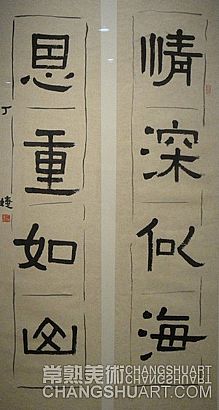 情深似海
恩重如山
丁
常熟美術 CHANGSHUART
CHANGSHUART.COM